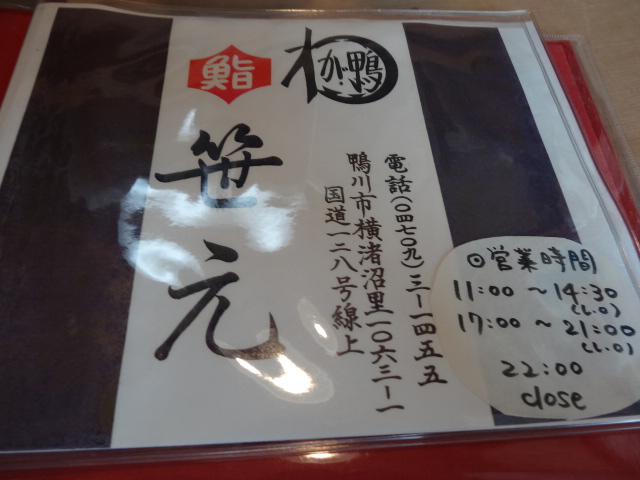 鮨
わが鴨
笹元
電話(〇四七〇九)三ー一四五五
鴨川市横渚沼里一〇六三ー一
国道一二八号線上
◎営業時間
11:00 ~ 14:30
(L.O)
17:00 ~ 21:00
(L.O)
22:00
close